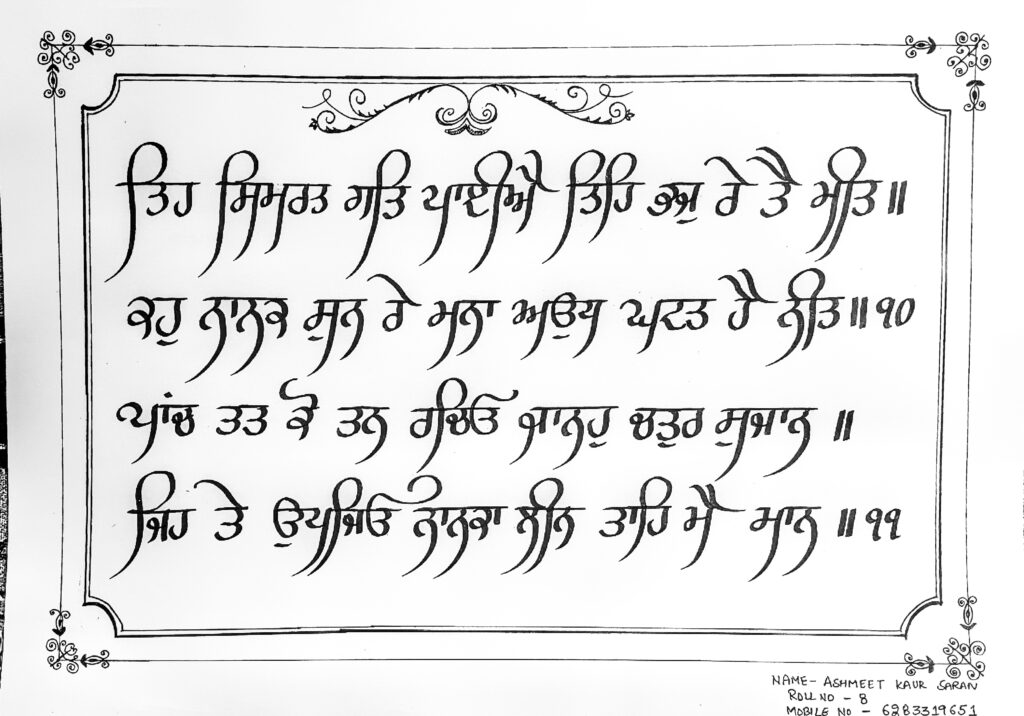 ਤਿਹ ਸਿਮਰਤ ਗਤਿ ਪਾਈਐ ਤਿਹਿ ਭਜੁ ਰੇ ਤੈ ਮੀਤ॥
ਕਹੁ ਨਾਨਕ ਸੁਨ ਰੇ ਮਨਾ ਅਉਧ ਘਟਤ ਹੈ ਨੀਤ॥੧੦
ਪਾਂਚ ਤਤ ਕੋ ਤਨ ਰਚਿਓ ਜਾਨਹੁ ਚਤੁਰ ਸੁਜਾਨ ॥
ਜਿਹ ਤੇ ਉਪਜਿਓ ਨਾਨਕਾ ਲੀਨ ਤਾਹਿ ਮੈ ਮਾਨ ॥੧੧
NAME- ASHMEET KAUR SARAN
ROLL NO - 8
MOBILE NO - 6283319651